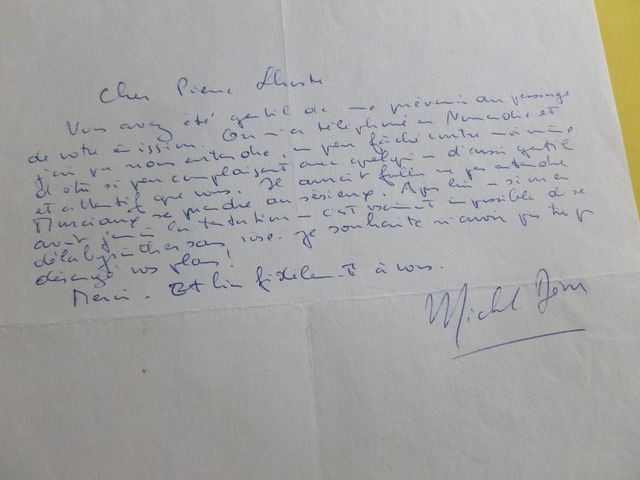 Cher Pierre Lhoste
Vous avez été gentil de me prévenir du passage
de votre émission. On m'a téléphoné en Normandie et
j'ai pu nous entendre, un peu fâché contre moi-même
d'être si peu complaisant avec quelqu'un d'aussi gentil
et attentif que vous. Je aurait fallu ne pas entendre
Marceau se prendre au sérieux. Après lui - si on en
avait jamais la tentation - c'est vraiment impossible de se
sans rire. Je souhaite n'avoir pas trop
dérangé vos plans!
Merci. Et bien fidèlement à vous.
Michel